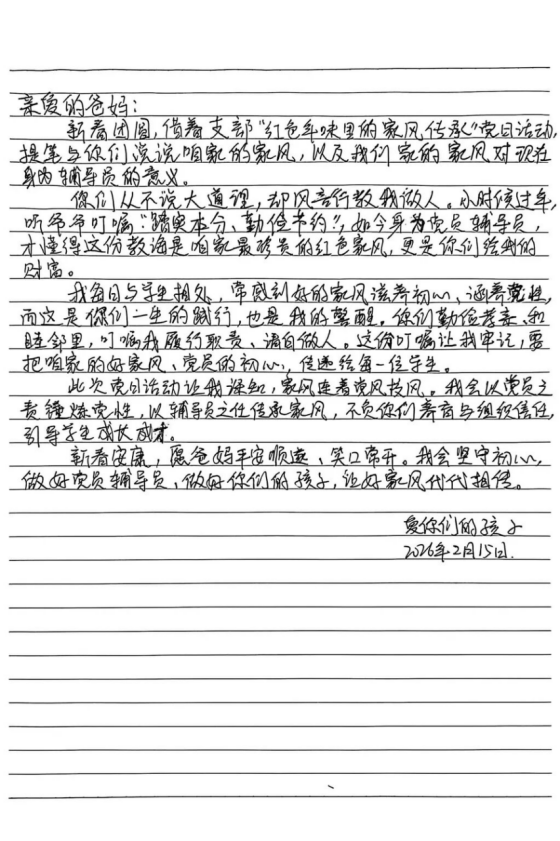 亲爱的爸妈：
新春团圆，借着支部“红色年味里的家风传承”党日活动，
提笔与你们说说咱家的家风，以及我们家的家风对现在
身为辅导员的意义。
你们从不说大道理，却风言行教我做人。小时候过年，
听爷爷叮嘱“踏实本分、勤俭节约”，如今身为党员辅导员，
才懂得这份教诲是咱家最珍贵的红色家风，更是你们给我的
财富。
我每日与学生相处，常感到好的家风滋养初心、涵养党性，
而这是你们一生的践行，也是我的警醒。你们勤俭孝亲、和
睦邻里，叮嘱我履行职责、清白做人。这份叮嘱让我牢记，要
把咱家的好家风、党员的初心，传递给每一位学生。
此次党日活动让我深知，家风连着党风校风。我会以党员之
责锤炼党性，以辅导员之任传承家风，不负你们养育与组织信任，
引导学生成长成才。
新春安康，愿爸妈平安顺遂、笑口常开。我会坚守初心，
做好党员辅导员、做好你们的孩子，让好家风代代相传。
爱你们的孩子
2026年2月15日.